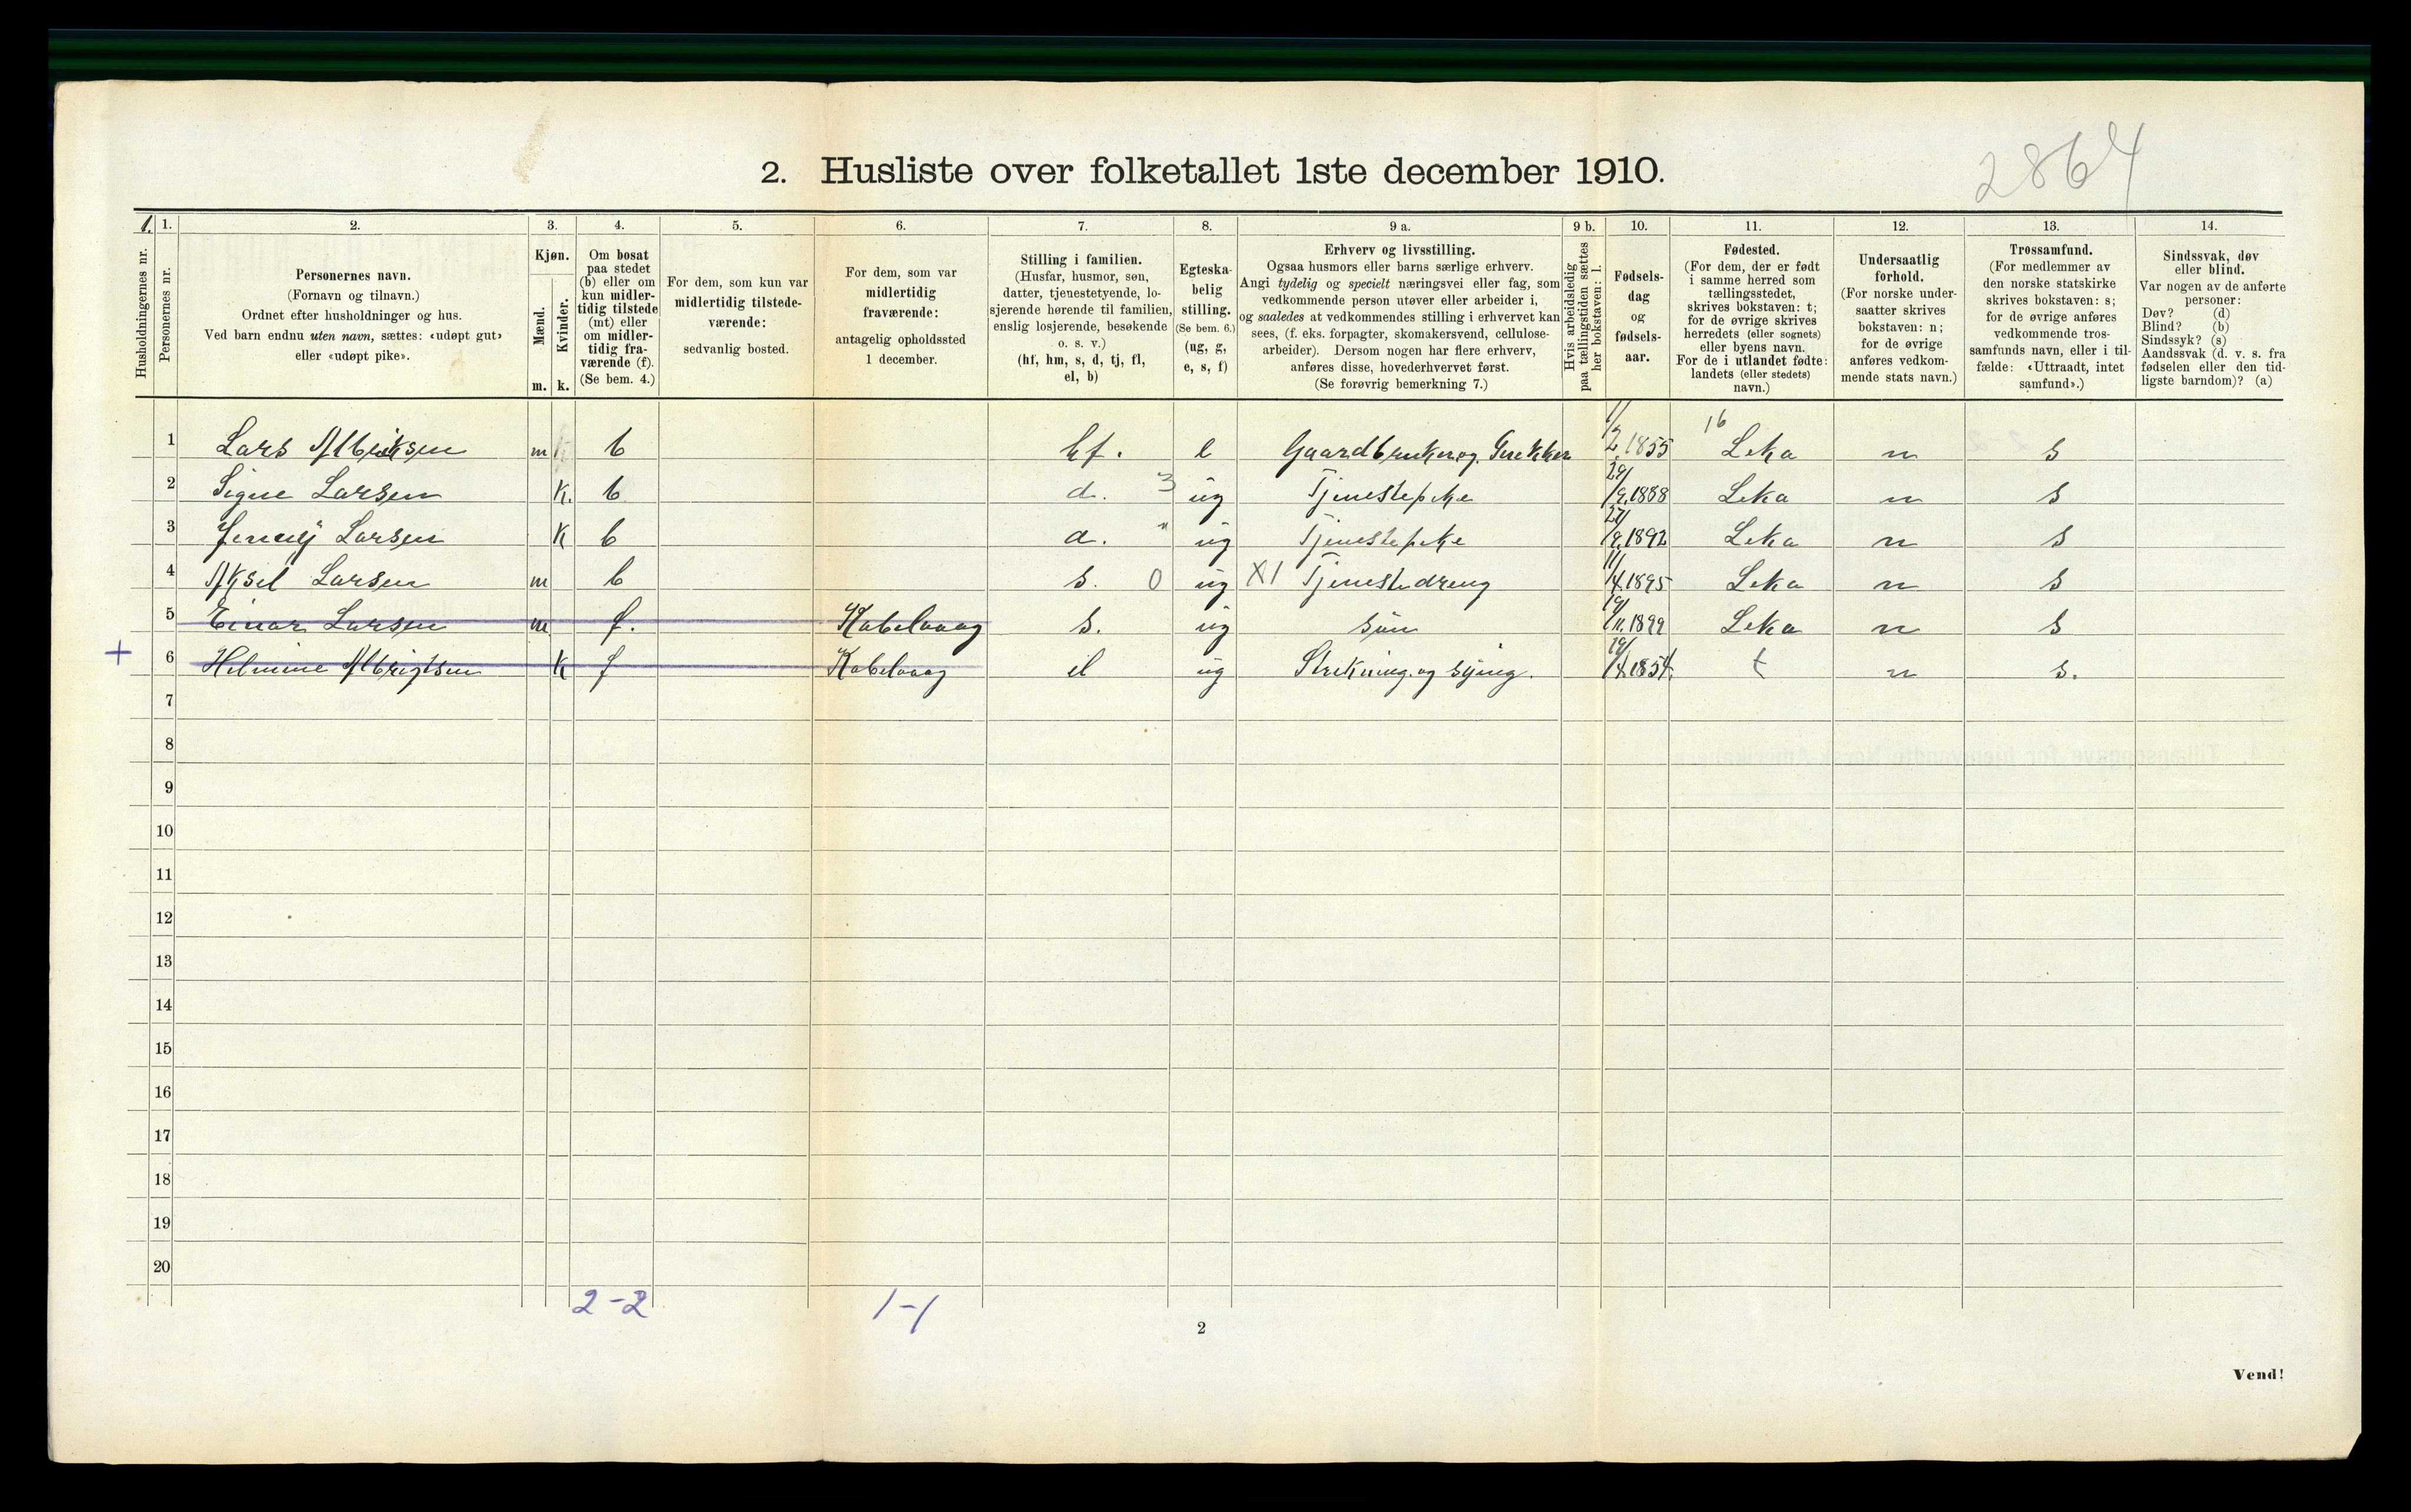 2864
2. Husliste over folketallet 1ste december 1910.
1. 1. 2. 3. 4. 5. 6. 7. 8. 9 a. 9 b. 10. 11. 12. 13. 14.
Husholdningernes nr.
Personernes nr.
Personernes navn.
(Fornavn og tilnavn.)
Ordnet efter husholdninger og hus.
Ved barn endnu uten navn, sættes: «udøpt gut»
eller «udøpt pike».
Kjøn.
Mænd.
Kvinder.
m. k.
Om bosat
paa stedet
(b) eller om
kun midler-
tidig tilstede
(mt) eller
om midler-
tidig fra-
værende (f).
(Se bem. 4.)
For dem, som kun var
midlertidig tilstede-
værende:
sedvanlig bosted.
For dem, som var
midlertidig
fraværende:
antagelig opholdssted
1 december.
Stilling i familien.
(Husfar, husmor, søn,
datter, tjenestetyende, lo-
sjerende hørende til familien,
enslig losjerende, besøkende
o. s. v.)
(hf, hm, s, d, tj, fl,
el, b)
Egteska-
belig
stilling.
(Se bem. 6.)
(ug, g,
e, s, f)
Erhverv og livsstilling.
Ogsaa husmors eller barns særlige erhverv.
Angi tydelig og specielt næringsvei eller fag, som
vedkommende person utøver eller arbeider i,
og saaledes at vedkommendes stilling i erhvervet kan
sees, (f. eks. forpagter, skomakersvend, cellulose-
arbeider). Dersom nogen har flere erhverv,
anføres disse, hovederhvervet først.
(Se forøvrig bemerkning 7.)
Hvis arbeidsledig
paa tællingstiden sættes
her bokstaven: l.
Fødsels-
dag
og
fødsels-
aar.
Fødested.
(For dem, der er født
i samme herred som
tællingsstedet,
skrives bokstaven: t;
for de øvrige skrives
herredets (eller sognets)
eller byens navn.
For de i utlandet fødte:
landets (eller stedets)
navn.)
Undersaatlig
forhold.
(For norske under-
saatter skrives
bokstaven: n;
for de øvrige
anføres vedkom-
mende stats navn.)
Trossamfund.
(For medlemmer av
den norske statskirke
skrives bokstaven: s;
for de øvrige anføres
vedkommende tros-
samfunds navn, eller i til-
fælde: «Uttraadt, intet
samfund».)
Sindssvak, døv
eller blind.
Var nogen av de anførte
personer:
Døv? (d)
Blind? (b)
Sindssyk? (s)
Aandssvak (d. v. s. fra
fødselen eller den tid-
ligste barndom)? (a)
16
1 Lars Albriksen m b hf. e Gaardbruker og 1/2 1855 Leka n s
2 Signe Larsen k. b d. 3 ug Tjenestepike 1888 Leka n s
3 Jenny Larsen k b d. " ug Tjenestepike 1892 Leka n s
4 Aksel Larsen m b s. 0 ug X1 Tjenestedreng 11/4 1895 Leka n s
5 Einar Larsen m f. Kabelvaag s. ug sün 19/11 1899 Leka n s
+ 6 Helmine Albrigtsen k f Kabelvaag el ug Strikning og sying. 19/4 1854 t n s.
7
8
9
10
11
12
13
14
15
16
17
18
19
20
2-2 1-1
2
Vend!